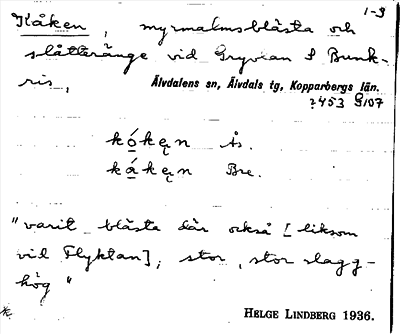 1-3
Kåken, myrmalmsblästa och
slåtteränge vid Gryvlan S Bunk-
ris,
Älvdalens sn, Älvdals tg, Kopparbergs län.
2453 S107
kóken Ås.
kåken Bre.
"varit blästa där också [liksom
vid Flyktan], stor, stor slagg-
hög"
HELGE LINDBERG 1936.